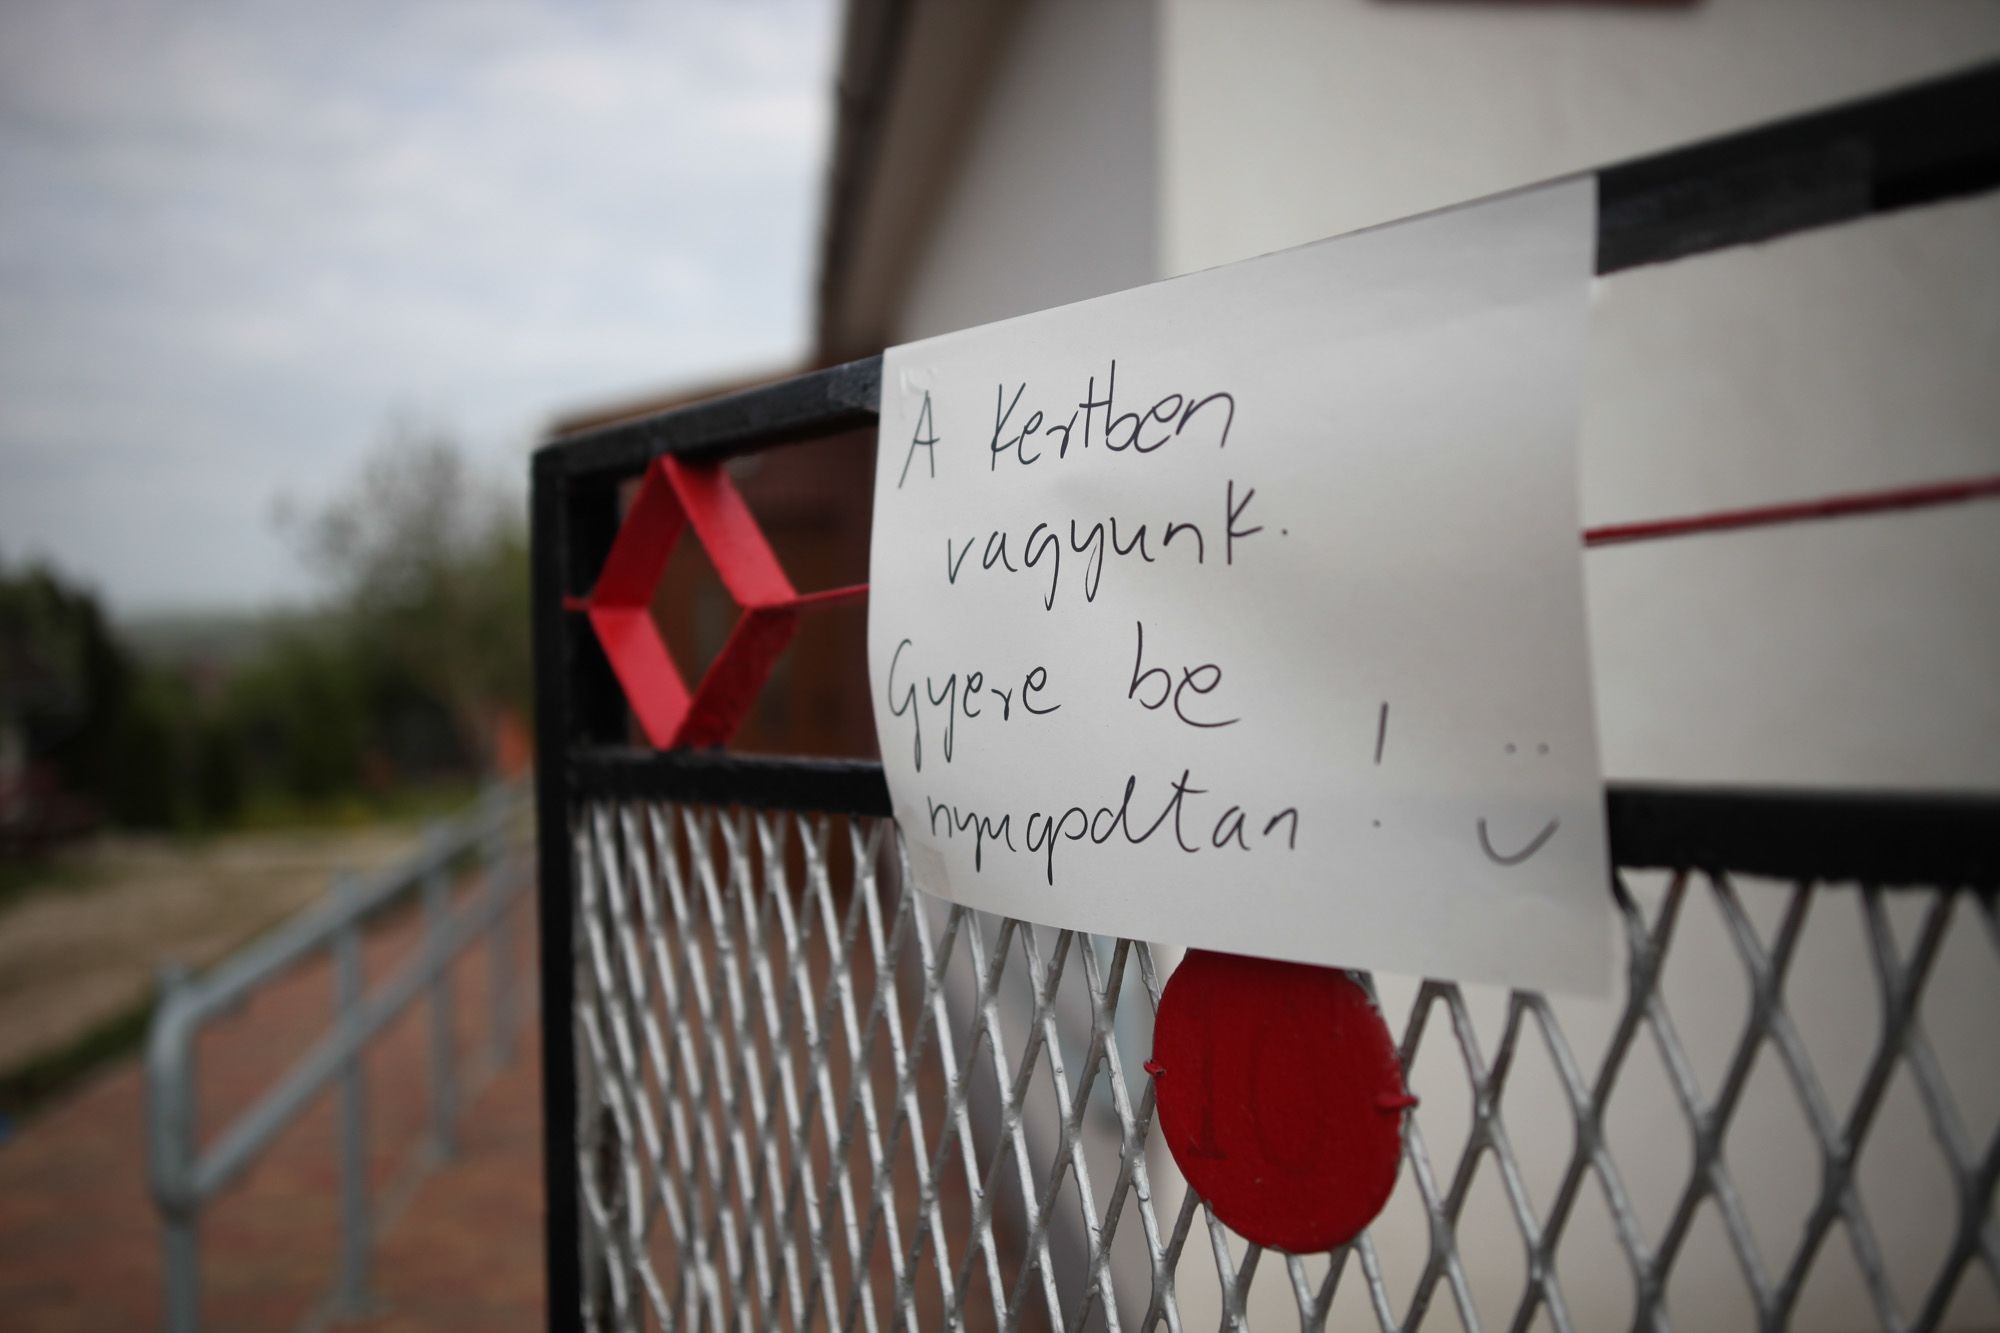 A Kertben
vagyunk.
Gyere be
nyugodtan ! :)
10